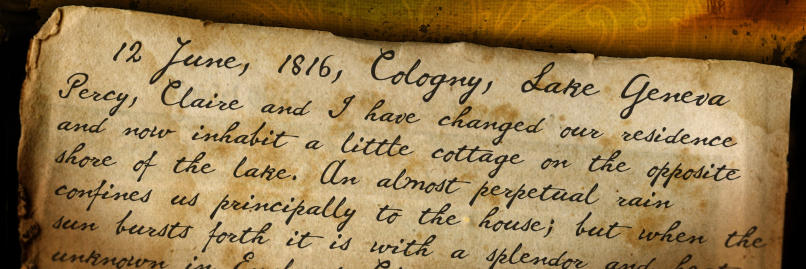 12 June, 1816, Cologny, Lake Geneva
Percy, Claire and I have changed our residence
and now inhabit a little cottage on the opposite
shore of the lake. An almost perpetual rain
confines us principally to the house; but when the
sun bursts forth it is with a splendor and
unknown in